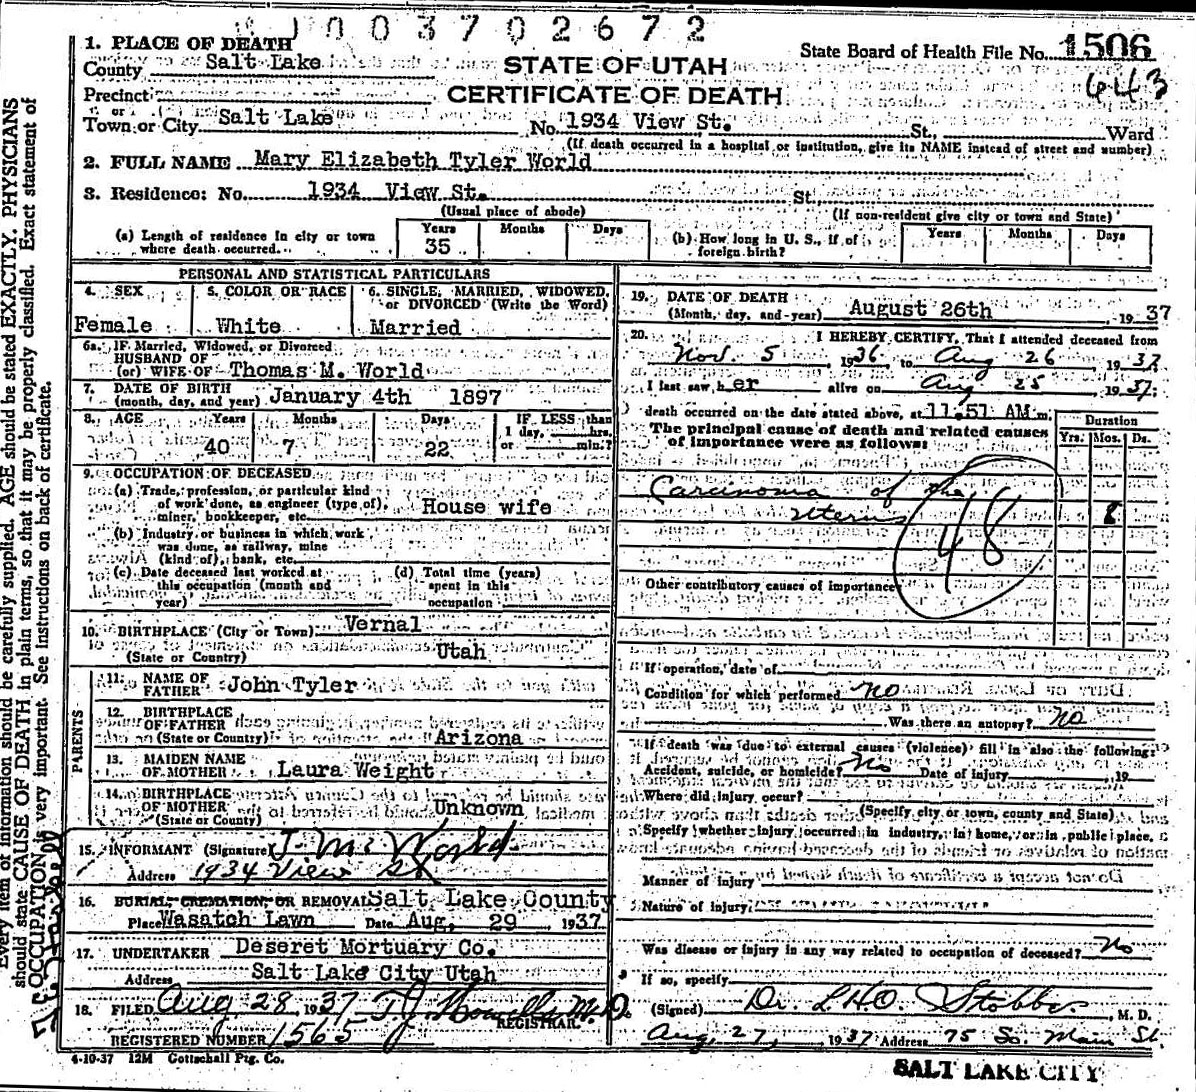 J003702672
1. PLACE OF DEATH
State Board of Health File No. 1506
County Salt Lake
STATE OF UTAH
643
Precinct
CERTIFICATE OF DEATH
or
Town or City Salt Lake No. 1934 View St. St., Ward
(If death occurred in a hospital or institution, give its NAME instead of street and number)
2. FULL NAME Mary Elizabeth Tyler World
3. Residence: No. 1934 View St. St.
(Usual place of abode) (If non-resident give city or town and State)
(a) Length of residence in city or town where death occurred. Years 35 Months Days
(b) How long in U. S., if of foreign birth? Years Months Days
PERSONAL AND STATISTICAL PARTICULARS
4. SEX Female
5. COLOR OR RACE White
6. SINGLE, MARRIED, WIDOWED, or DIVORCED (Write the Word) Married
6a. IF Married, Widowed, or Divorced
HUSBAND OF
(or) WIFE OF Thomas M. World
7. DATE OF BIRTH
(month, day, and year) January 4th 1897
8. AGE Years Months Days IF LESS than
40 7 22 1 day, hrs.
or min.?
9. OCCUPATION OF DECEASED
(a) Trade, profession, or particular kind
of work done, as engineer (type of),
miner, bookkeeper, etc. House wife
(b) Industry or business in which work
was done, as railway, mine
(kind of), bank, etc.
(c) Date deceased last worked at
this occupation (month and
year)
(d) Total time (years)
spent in this
occupation
10. BIRTHPLACE (City or Town) Vernal
(State or Country) Utah
PARENTS
11. NAME OF
FATHER John Tyler
12. BIRTHPLACE
OF FATHER
(State or Country) Arizona
13. MAIDEN NAME
OF MOTHER Laura Weight
14. BIRTHPLACE
OF MOTHER
(State or Country) Unknown
15. INFORMANT (Signature) T. M. World
Address 1934 View St
16. BURIAL, CREMATION, OR REMOVAL Salt Lake County
Place Wasatch Lawn Date Aug. 29 1937
17. UNDERTAKER Deseret Mortuary Co.
Address Salt Lake City Utah
18. FILED Aug 28, 1937 T. J. Howells M.D.
REGISTRAR.
REGISTERED NUMBER 1565
4-10-37 12M Gottschall Ptg. Co.
19. DATE OF DEATH
(Month, day, and year) August 26th, 1937
20. I HEREBY CERTIFY, That I attended deceased from
Nov. 5 1936, to Aug 26, 1937
I last saw her alive on Aug 25 1937;
death occurred on the date stated above, at 11.51 AM m.
The principal cause of death and related causes
of importance were as follows:
Duration
Yrs. Mos. Ds.
Carcinoma of the
uterus 8
48
Other contributory causes of importance
If operation, date of
Condition for which performed no
Was there an autopsy? no
If death was due to external causes (violence) fill in also the following:
Accident, suicide, or homicide? No Date of injury 19
Where did injury occur?
(Specify city or town, county and State)
Specify whether injury occurred in industry, in home, or in public place,
Manner of injury
Nature of injury
Was disease or injury in any way related to occupation of deceased? No
If so, specify
(Signed) Dr. L.H.O. Stobbe, M. D.
Aug. 27, 1937 Address 75 So. Main St.
SALT LAKE CITY
Every item of information should be carefully supplied. AGE should be stated EXACTLY. PHYSICIANS
should state CAUSE OF DEATH in plain terms, so that it may be properly classified. Exact statement of
OCCUPATION is very important. See instructions on back of certificate.